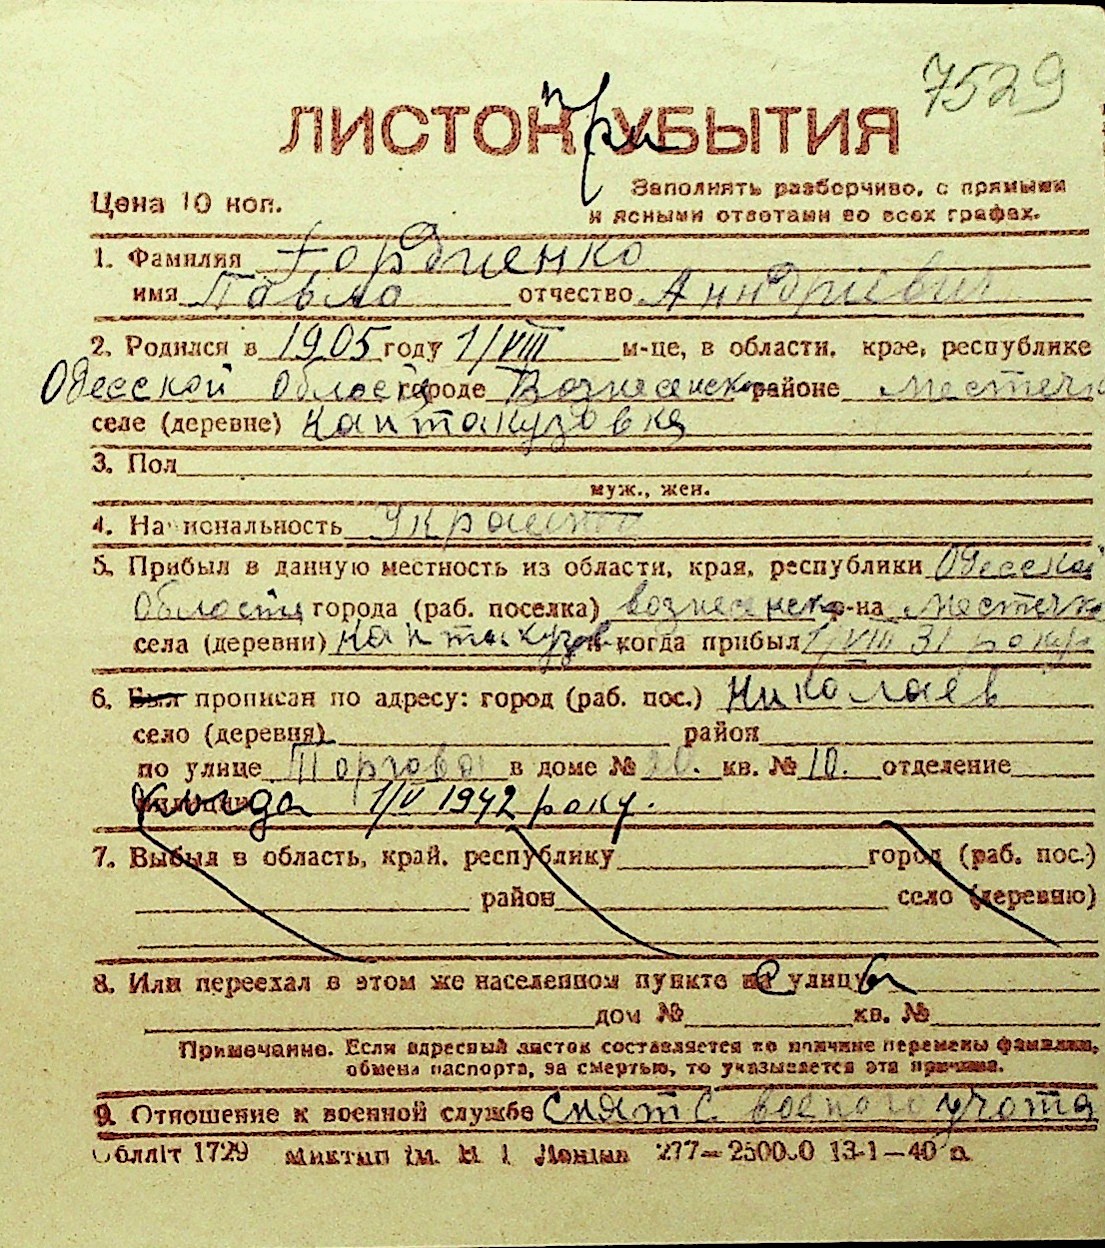 7529
ЛИСТОК при УБЫТИЯ
Цена 10 коп.
Заполнять разборчиво, с прямыми
и ясными ответами во всех графах.
1. Фамилия Гордиенко
имя Павло отчество Анндрієвич
2. Родился в 1905 году 1/VIII м-це, в области, крае, республике
Одесской области городе Вознесенско районе местечк
селе (деревне) Кантакузовка
3. Пол
муж., жен.
4. Национальность Украинец
5. Прибыл в данную местность из области, края, республики Одесской
Области города (раб. поселка) вознесенско р-на местечко
села (деревни) кантакузовк когда прибыл 1/VIII 31 року
6. Был прописан по адресу: город (раб. пос.) Николаев
село (деревня) район
по улице Торгова в доме № 20. кв. № 10. отделение
когда 1/V 1942 року.
7. Выбыл в область, край, республику город (раб. пос.)
район село (деревню)
8. Или переехал в этом же населенном пункте с улицы
дом № кв. №
Примечание. Если адресный листок составляется по причине перемены фамилии,
обмена паспорта, за смертью, то указывается эта причина.
9. Отношение к военной службе Снят с военого учота
Обллiт 1729 277—2500.0 13-1—40 п.